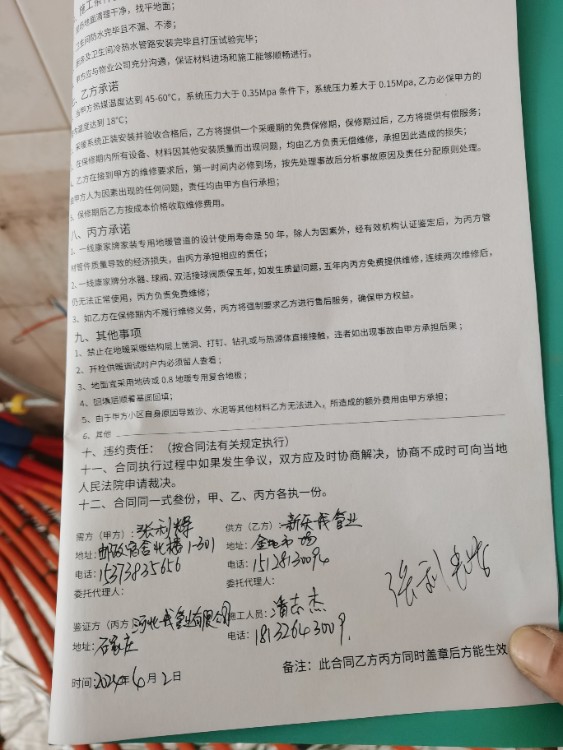 施工条件
地面清理干净，找平地面；
卫生间防水完毕且不漏、不渗；
及卫生间冷热水管路安装完毕且打压试验完毕；
应与物业公司充分沟通，保证材料进场和施工能够顺畅进行。
乙方承诺
甲方热媒温度达到 45-60℃，系统压力大于 0.35Mpa 条件下，系统压力差大于 0.15Mpa，乙方必保甲方的
温度达到 18℃；
采暖系统正装安装并验收合格后，乙方将提供一个采暖期的免费保修期，保修期过后，乙方将提供有偿服务；
在保修期内所有设备、材料因其他安装质量而出现问题，均由乙方负责无偿维修，承担因此造成的损失；
乙方在接到甲方的维修要求后，第一时间内必修到场，按先处理事故后分析事故原因及责任分配原则处理。
甲方人为因素出现的任何问题，责任均由甲方自行承担；
保修期后乙方按成本价格收取维修费用。
八、丙方承诺
1、一线康家牌家装专用地暖管道的设计使用寿命是 50 年，除人为因素外，经有效机构认证鉴定后，为丙方管
材管件质量导致的经济损失，由丙方承担相应的责任；
2、一线康家牌分水器、球阀、双活接球阀质保五年，如发生质量问题，五年内丙方免费提供维修，连续两次维修后，
仍无法正常使用，丙方负责免费维修；
3、如乙方在保修期内不履行维修义务，丙方将强制要求乙方进行售后服务，确保甲方权益。
九、其他事项
1、禁止在地暖采暖结构层上凿洞、打钉、钻孔或与热源体直接接触，违者如出现事故由甲方承担后果；
2、开栓供暖调试时户内必须留人查看；
3、地面宜采用地砖或 0.8 地暖专用复合地板；
4、回填结顺着基底回填；
5、由于甲方小区自身原因导致沙、水泥等其他材料乙方无法进入，所造成的额外费用由甲方承担；
6、其他
十、违约责任：（按合同法有关规定执行）
十一、合同执行过程中如果发生争议，双方应及时协商解决，协商不成时可向当地
人民法院申请裁决。
十二、合同同一式叁份，甲、乙、丙方各执一份。
需方（甲方）：张利辉 供方（乙方）：新天成管业
地址：邮政宿舍北楼1-301 地址：金地市场
电话：15373835656 电话：15128130094
委托代理人： 委托代理人：
张利
鉴证方（丙方 河北 管业有限公司 施工人员：潘志杰
地址：石家庄 电话：18132643009
时间：2024年6月2日
备注：此合同乙方丙方同时盖章后方能生效